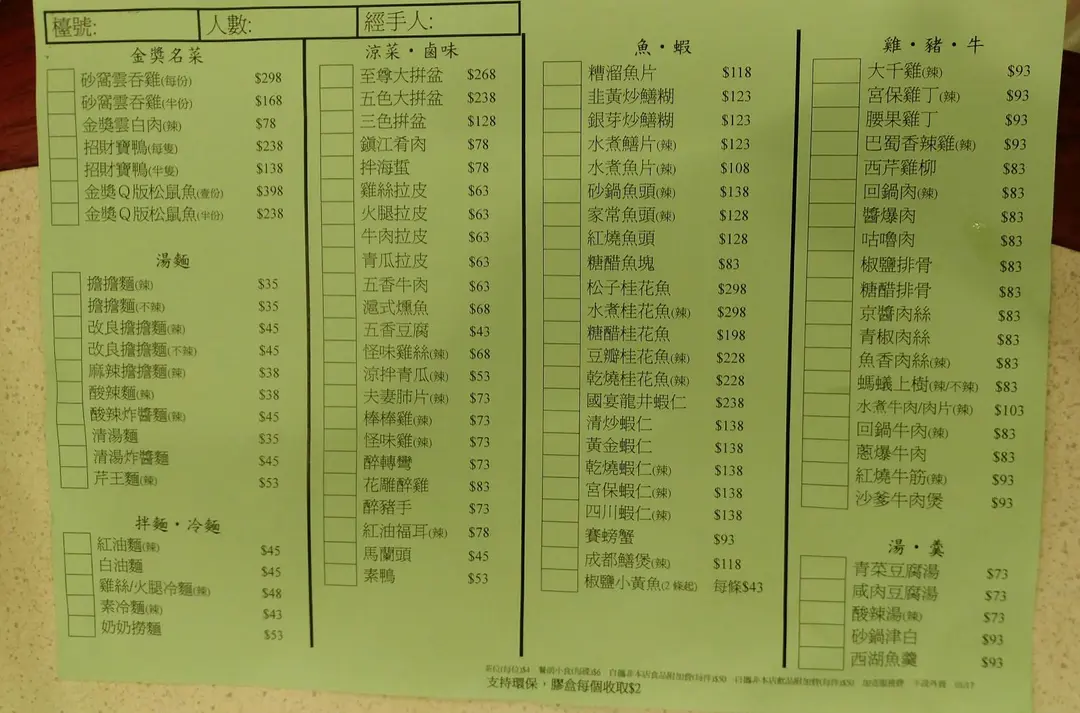 檯號:
人數:
經手人:
金獎名菜
砂窩雲吞雞(每份) $298
砂窩雲吞雞(半份) $168
金獎雲白肉(辣) $78
招財寶鴨(每隻) $238
招財寶鴨(半隻) $138
金獎Q版松鼠魚(壹份) $398
金獎Q版松鼠魚(半份) $238
湯麵
擔擔麵(辣) $35
擔擔麵(不辣) $35
改良擔擔麵(辣) $45
改良擔擔麵(不辣) $45
麻辣擔擔麵(辣) $38
酸辣麵(辣) $38
酸辣炸醬麵(辣) $45
清湯麵 $35
清湯炸醬麵 $45
芹王麵(辣) $53
拌麵・冷麵
紅油麵(辣) $45
白油麵 $45
雞絲/火腿冷麵(辣) $48
素冷麵(辣) $43
奶奶撈麵 $53
涼菜・鹵味
至尊大拼盆 $268
五色大拼盆 $238
三色拼盆 $128
鎭江肴肉 $78
拌海蜇 $78
雞絲拉皮 $63
火腿拉皮 $63
牛肉拉皮 $63
青瓜拉皮 $63
五香牛肉 $63
滬式燻魚 $68
五香豆腐 $43
怪味雞絲(辣) $68
涼拌青瓜(辣) $53
夫妻肺片(辣) $73
棒棒雞(辣) $73
怪味雞(辣) $73
醉轉彎 $73
花雕醉雞 $83
醉豬手 $73
紅油福耳(辣) $78
馬蘭頭 $45
素鴨 $53
魚・蝦
糟溜魚片 $118
韭黃炒鱔糊 $123
銀芽炒鱔糊 $123
水煮鱔片(辣) $123
水煮魚片(辣) $108
砂鍋魚頭(辣) $138
家常魚頭(辣) $128
紅燒魚頭 $128
糖醋魚塊 $83
松子桂花魚 $298
水煮桂花魚(辣) $298
糖醋桂花魚 $198
豆瓣桂花魚(辣) $228
乾燒桂花魚(辣) $228
國宴龍井蝦仁 $238
清炒蝦仁 $138
黃金蝦仁 $138
乾燒蝦仁(辣) $138
宮保蝦仁(辣) $138
四川蝦仁(辣) $138
賽螃蟹 $93
成都鱔煲(辣) $118
椒鹽小黃魚(2條起) 每條$43
雞・豬・牛
大千雞(辣) $93
宮保雞丁(辣) $93
腰果雞丁 $93
巴蜀香辣雞(辣) $93
西芹雞柳 $83
回鍋肉(辣) $83
醬爆肉 $83
咕嚕肉 $83
椒鹽排骨 $83
糖醋排骨 $83
京醬肉絲 $83
青椒肉絲 $83
魚香肉絲(辣) $83
螞蟻上樹(辣/不辣) $83
水煮牛肉/肉片(辣) $103
回鍋牛肉(辣) $83
蔥爆牛肉 $83
紅燒牛筋(辣) $93
沙爹牛肉煲 $93
湯・羹
青菜豆腐湯 $73
咸肉豆腐湯 $73
酸辣湯(辣) $73
砂鍋津白 $93
西湖魚羹 $93
茶位(每位)$4 餐前小食(每碟)$6 自攜非本店食品附加費(每件)$50 自攜非本店飲品附加費(每件)$50 加壹服務費
支持環保，膠盒每個收取$2